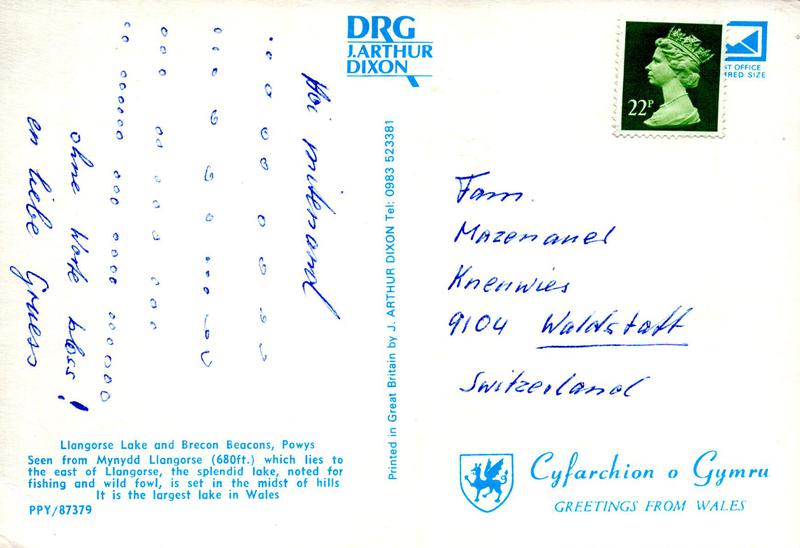 DRG
J.ARTHUR
DIXON
22P
ST OFFICE
RED SIZE
Hoi mitenand
ohne Worte bloss!
en liebe Gruess
Printed in Great Britain by J. ARTHUR DIXON Tel: 0983 523381
Fam.
Mazenauer
Knenwies
9104 Waldstatt
Switzerland
Llangorse Lake and Brecon Beacons, Powys
Seen from Mynydd Llangorse (680ft.) which lies to
the east of Llangorse, the splendid lake, noted for
fishing and wild fowl, is set in the midst of hills
It is the largest lake in Wales
PPY/87379
Cyfarchion o Gymru
GREETINGS FROM WALES